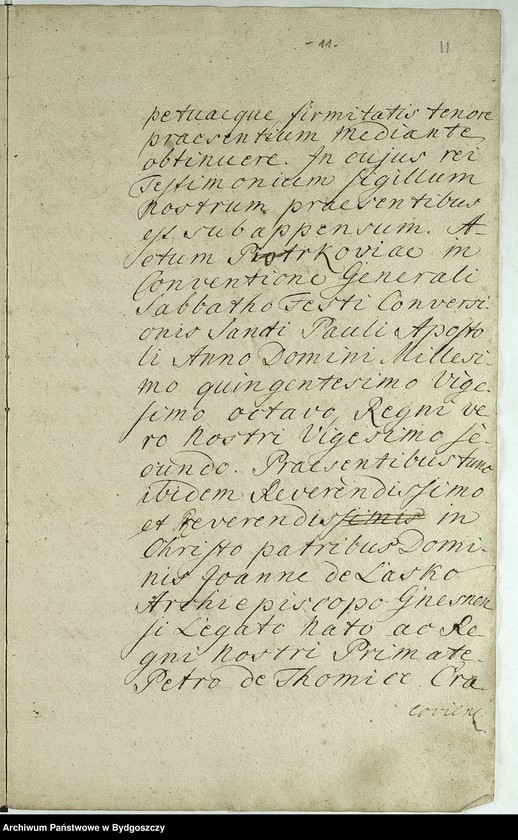 - 11. -
11
petuaeque firmitatis tenore
praesentium mediante
obtinuere. In cujus rei
Testimonium sigillum
nostrum praesentibus
est subappensum. A-
ctum Piotrkoviae in
Conventione Generali
Sabbatho Festi Conversi
onis Sancti Pauli Aposto
li Anno Domini Millesi
mo quingentesimo Vige-
simo octavo, Regni ve
ro Nostri Vigesimo se-
cundo. Praesentibus tunc
ibidem Reverendissimo
et Reverendissimis in
Christo patribus Domi-
nis Joanne de Lasko
Archiepiscopo Gnesnen
si Legato Nato ac Re-
gni Nostri Primate.
Petro de Thomice Cra
coviens
Archiwum Państwowe w Bydgoszczy